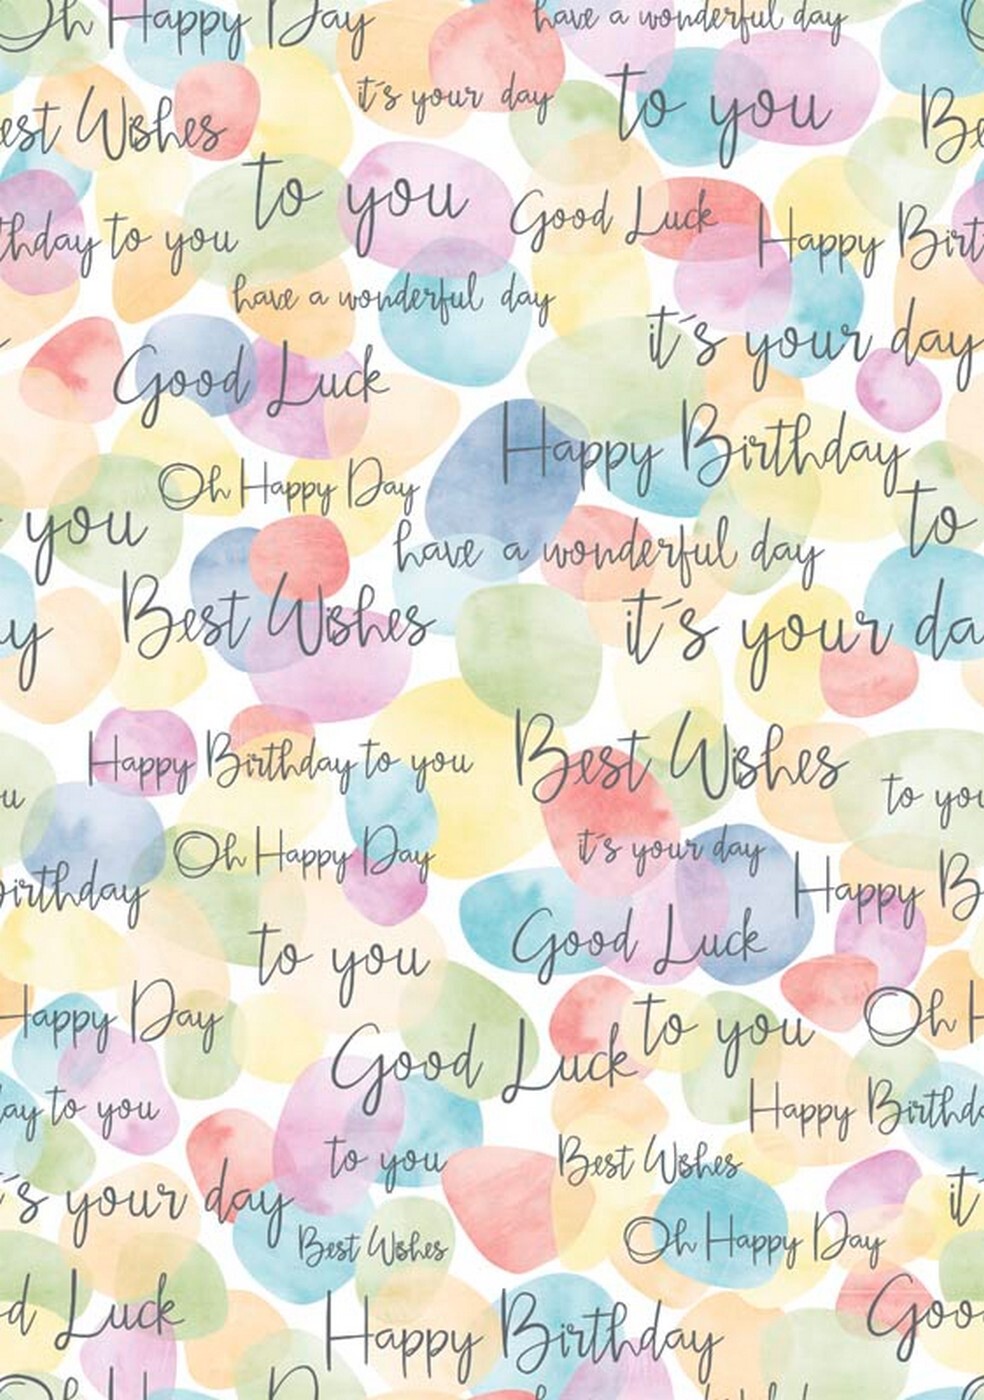 Oh Happy Day
have a wonderful day
it's your day
to you
est Wishes
Be
to you
Good Luck
thday to you
Happy Birt
have a wonderful day
it's your day
Good Luck
Happy Birthday
Oh Happy Day
you
to
have a wonderful day
Best Wishes
it's your da
y
Happy Birthday to you
Best Wishes
to you
u
Oh Happy Day
it's your day
irthday
Happy B
Good Luck
to you
Happy Day
to you
Oh H
Good Luck
ay to you
Happy Birthda
to you
Best Wishes
's your day
it
Best Wishes
Oh Happy Day
d Luck
Happy Birthday
Goo